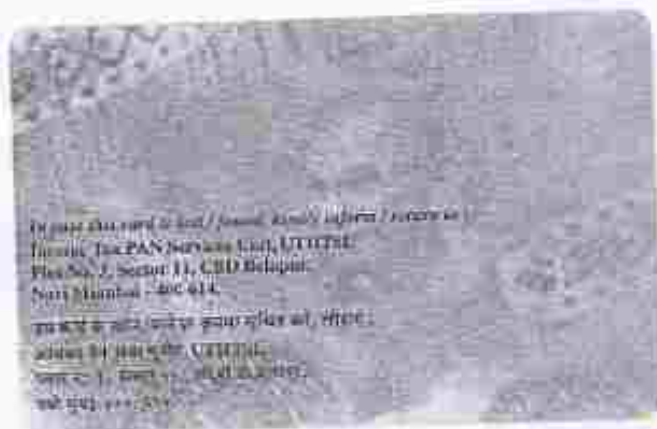 In case this card is lost / found, kindly inform / return to :
Income Tax PAN Services Unit, UTIITSL
Plot No. 3, Sector 11, CBD Belapur,
Navi Mumbai - 400 614.
इस कार्ड के खोने/पाने पर कृपया सूचित करें/लौटाएं :
आयकर पैन सेवा यूनिट, UTIITSL
प्लाट नं. ३, सेक्टर ११, सी.बी.डी.बेलापुर,
नवी मुंबई-